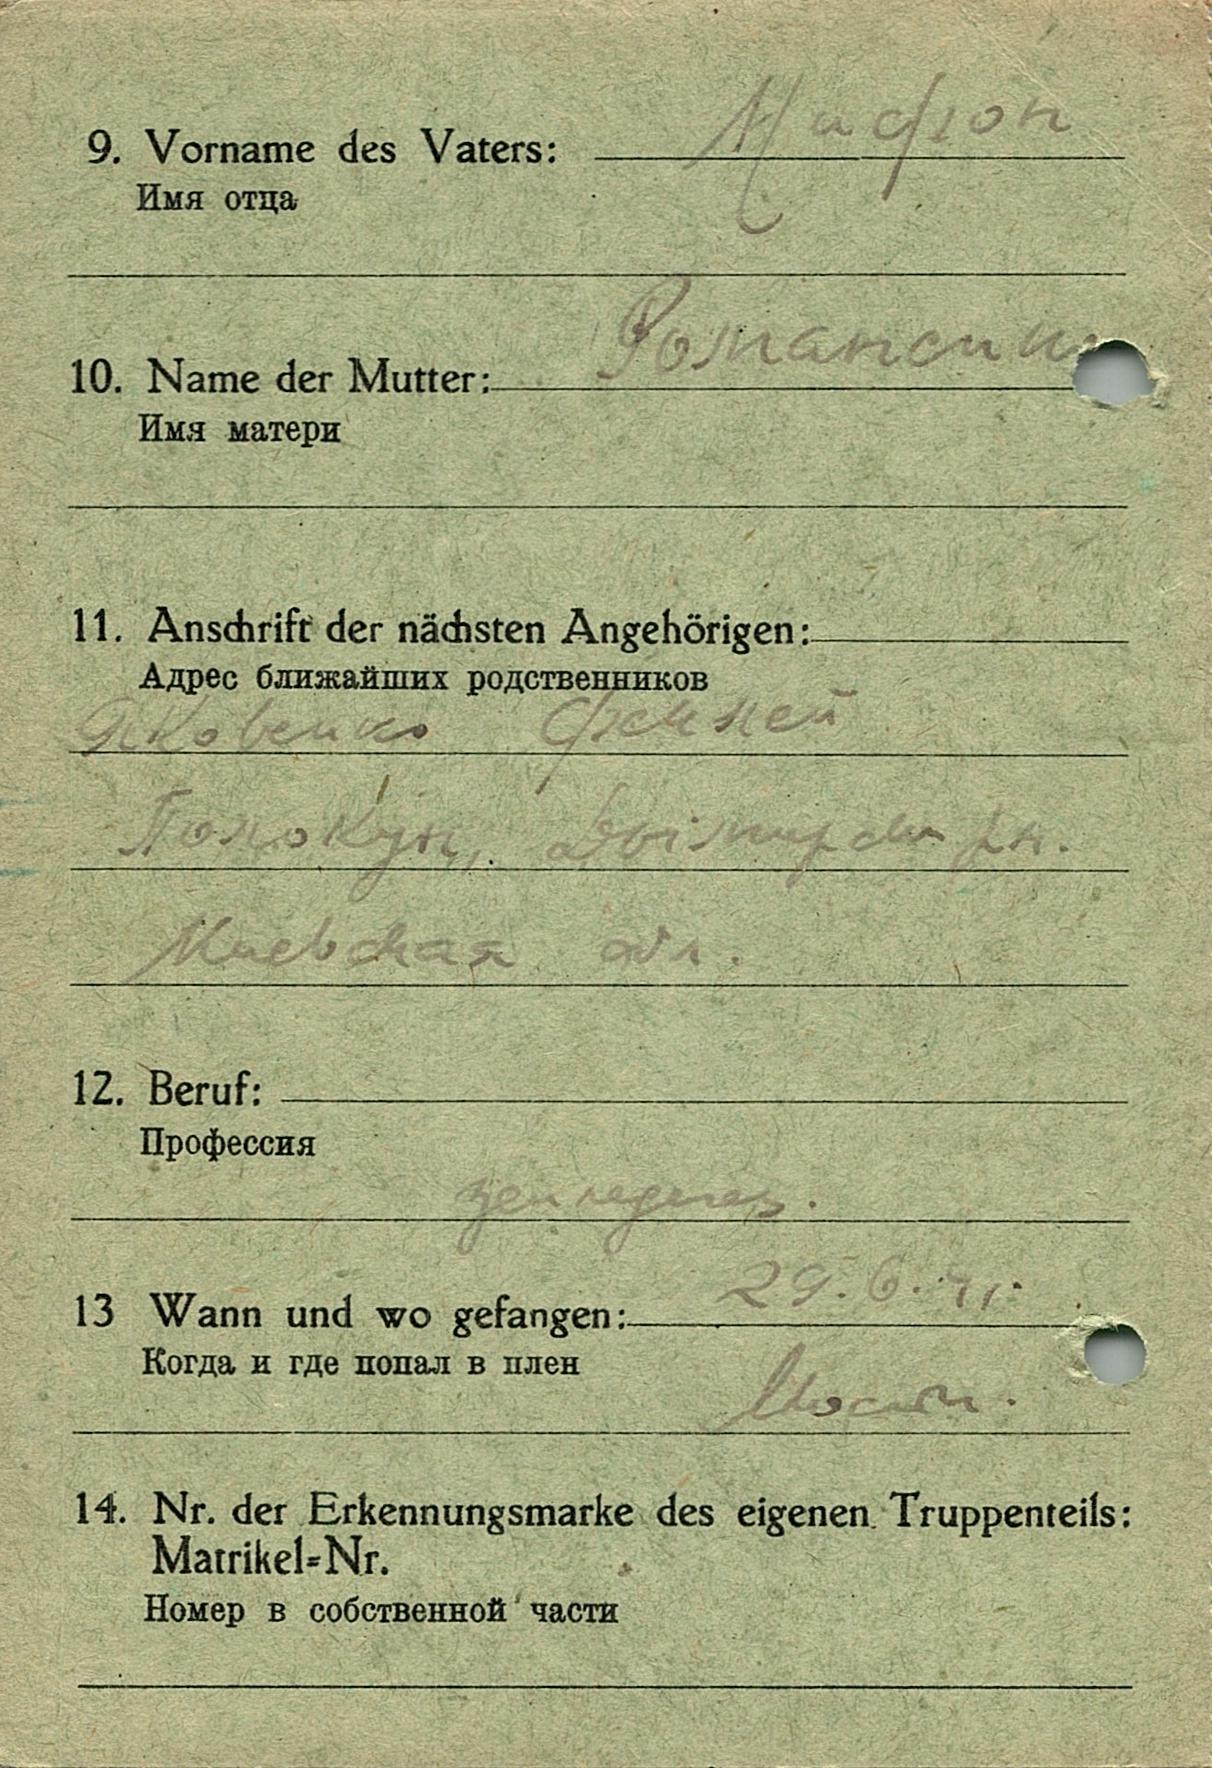 9. Vorname des Vaters:
Имя отца
10. Name der Mutter: Романенко
Имя матери
11. Anschrift der nächsten Angehörigen:
Адрес ближайших родственников
Яковенко
Киевская обл.
12. Beruf:
Профессия
13 Wann und wo gefangen: 29.6.41.
Когда и где попал в плен
14. Nr. der Erkennungsmarke des eigenen Truppenteils:
Matrikel=Nr.
Номер в собственной части